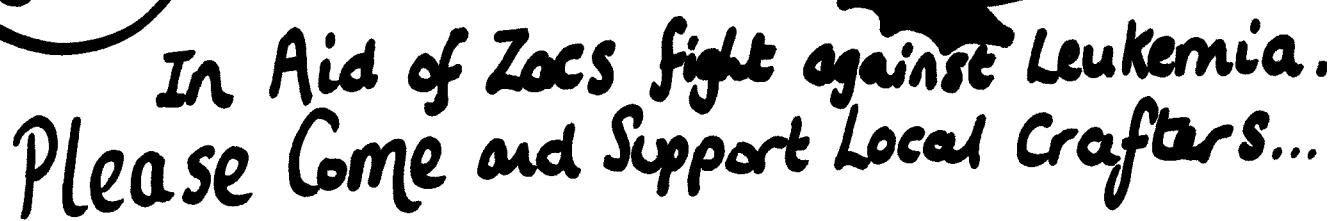 In Aid of Zacs fight against Leukemia.
Please Come and Support Local Crafters...